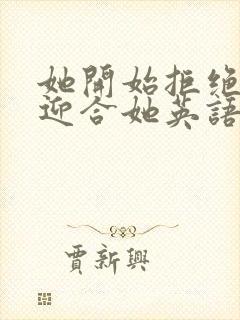 她開始拒绝
迎合她英語
賈新興